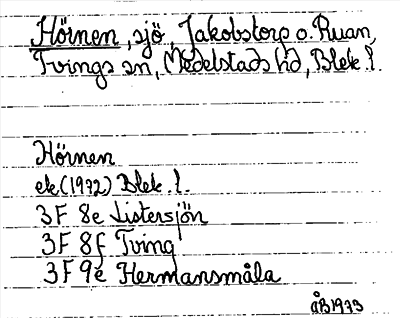 Hörnen, sjö, Jakobstorp o. Ruan,
Tvings sn, Medelstads hd, Blek. l.
Hörnen
ek (1972) Blek. l.
3F 8e Listersjön
3F 8f Tving
3F 9e Hermansmåla
ÅB1973